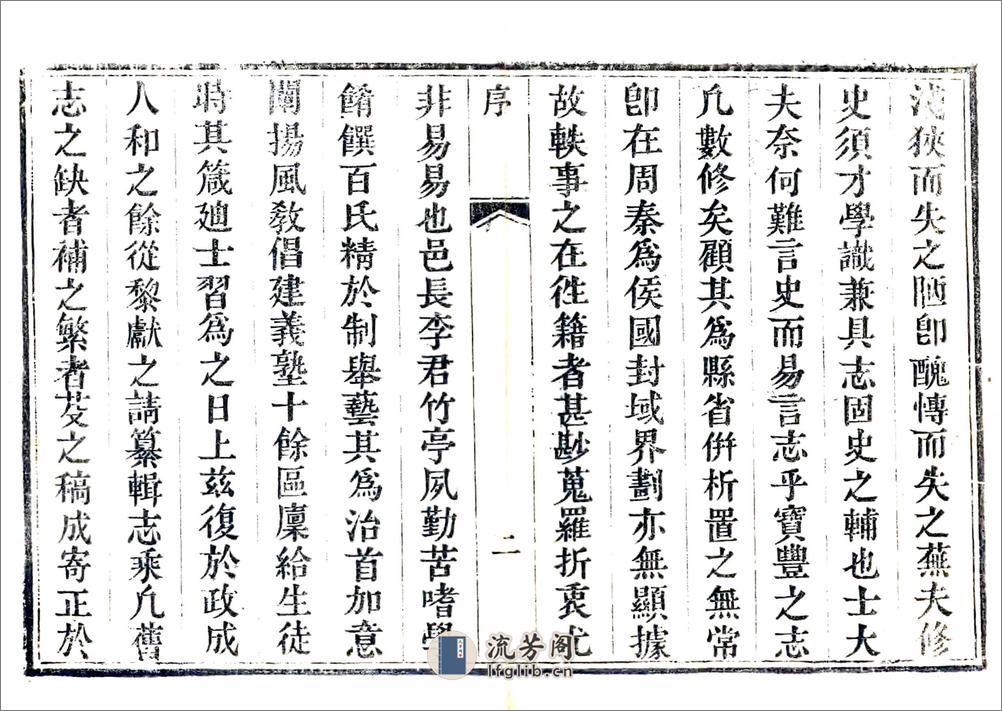 淺狹而失之陋卽醜慱而失之蕪夫修
史須才學識兼具志固史之輔也士大
夫奈何難言史而易言志乎寶豐之志
凢數修矣顧其爲縣省倂析置之無常
卽在周秦爲侯國封域界劃亦無顯據
故軼事之在徃籍者甚尠蒐羅折衷尤
序
二
非易易也邑長李君竹亭夙勤苦嗜學
餚饌百氏精於制舉藝其爲治首加意
闡揚風敎倡建義塾十餘區廩給生徒
時其箴廸士習爲之日上兹復於政成
人和之餘從黎獻之請纂輯志乘凢舊
志之缺者補之繁者芟之稿成寄正於
流芳阁
lfglib.cn